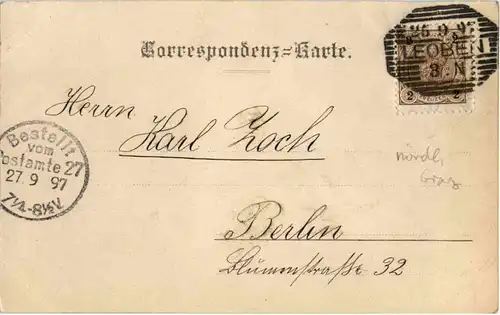 25 9 9
LEOBEN
8 N
2 2
Correspondenz=Karte.
Herrn
Karl Zoch
nördl.
Graz
Bestellt
vom
Postamte 27
27. 9 97
7¼-8½V.
Berlin
Blumenstraße 32